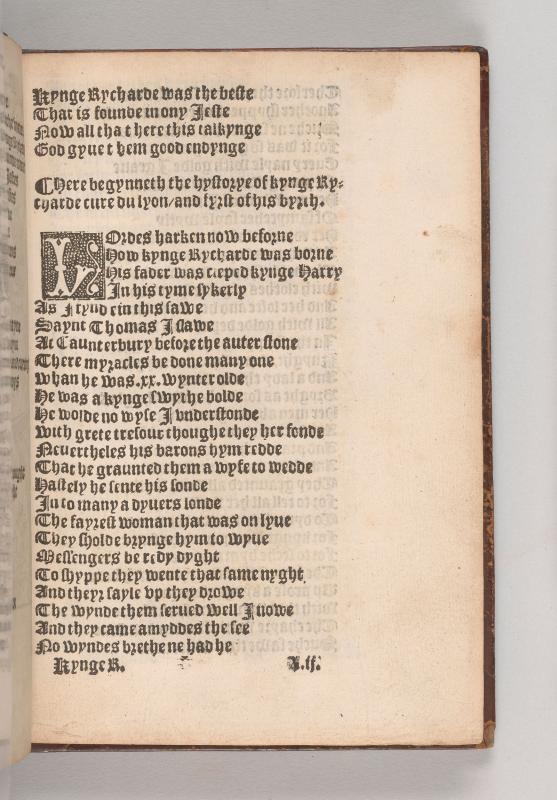 Kynge Rycharde was the beste
That is founde in ony Jeste
Now all that here this talkynge
God gyue them good endynge
¶ Here begynneth the hystorye of kynge Ry-
charde cure du lyon/and fyrst of his byrth.
LOrdes harken now beforne
How kynge Rycharde was borne
His fader was cleped kynge Harry
In his tyme sykerly
As I fynde in this sawe
Saynt Thomas I slawe
At Caunterbury before the auter stone
There myracles be done many one
whan he was .xx. wynter olde
He was a kynge swythe bolde
He wolde no wyfe I vnderstonde
with grete tresour thoughe they her fonde
Neuertheles his barons hym redde
That he graunted them a wyfe to wedde
Hastely he sente his sonde
In to many a dyuers londe
The fayrest woman that was on lyue
They sholde brynge hym to wyue
Messengers be redy dyght
To shyppe they wente that same nyght
And theyr sayle vp they drowe
The wynde them serued well I nowe
And they came amyddes the see
No wyndes brethe ne had he
Kynge R. A.ij.